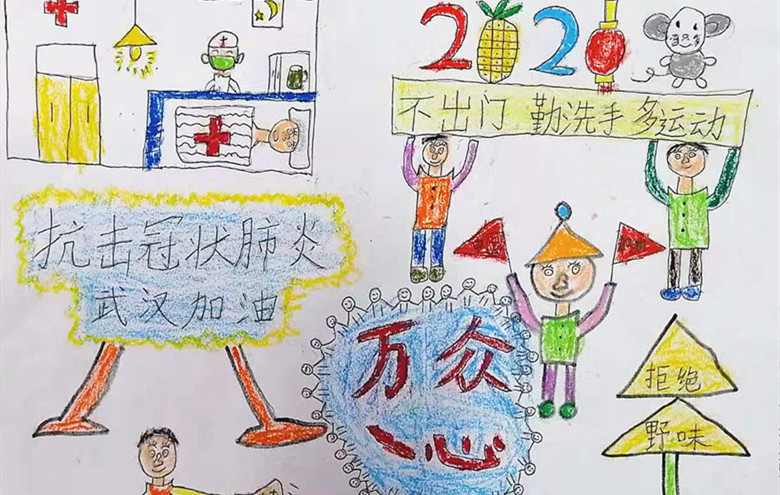 2020
不出门 勤洗手 多运动
抗击冠状肺炎
武汉加油
万众
一心
拒绝
野味